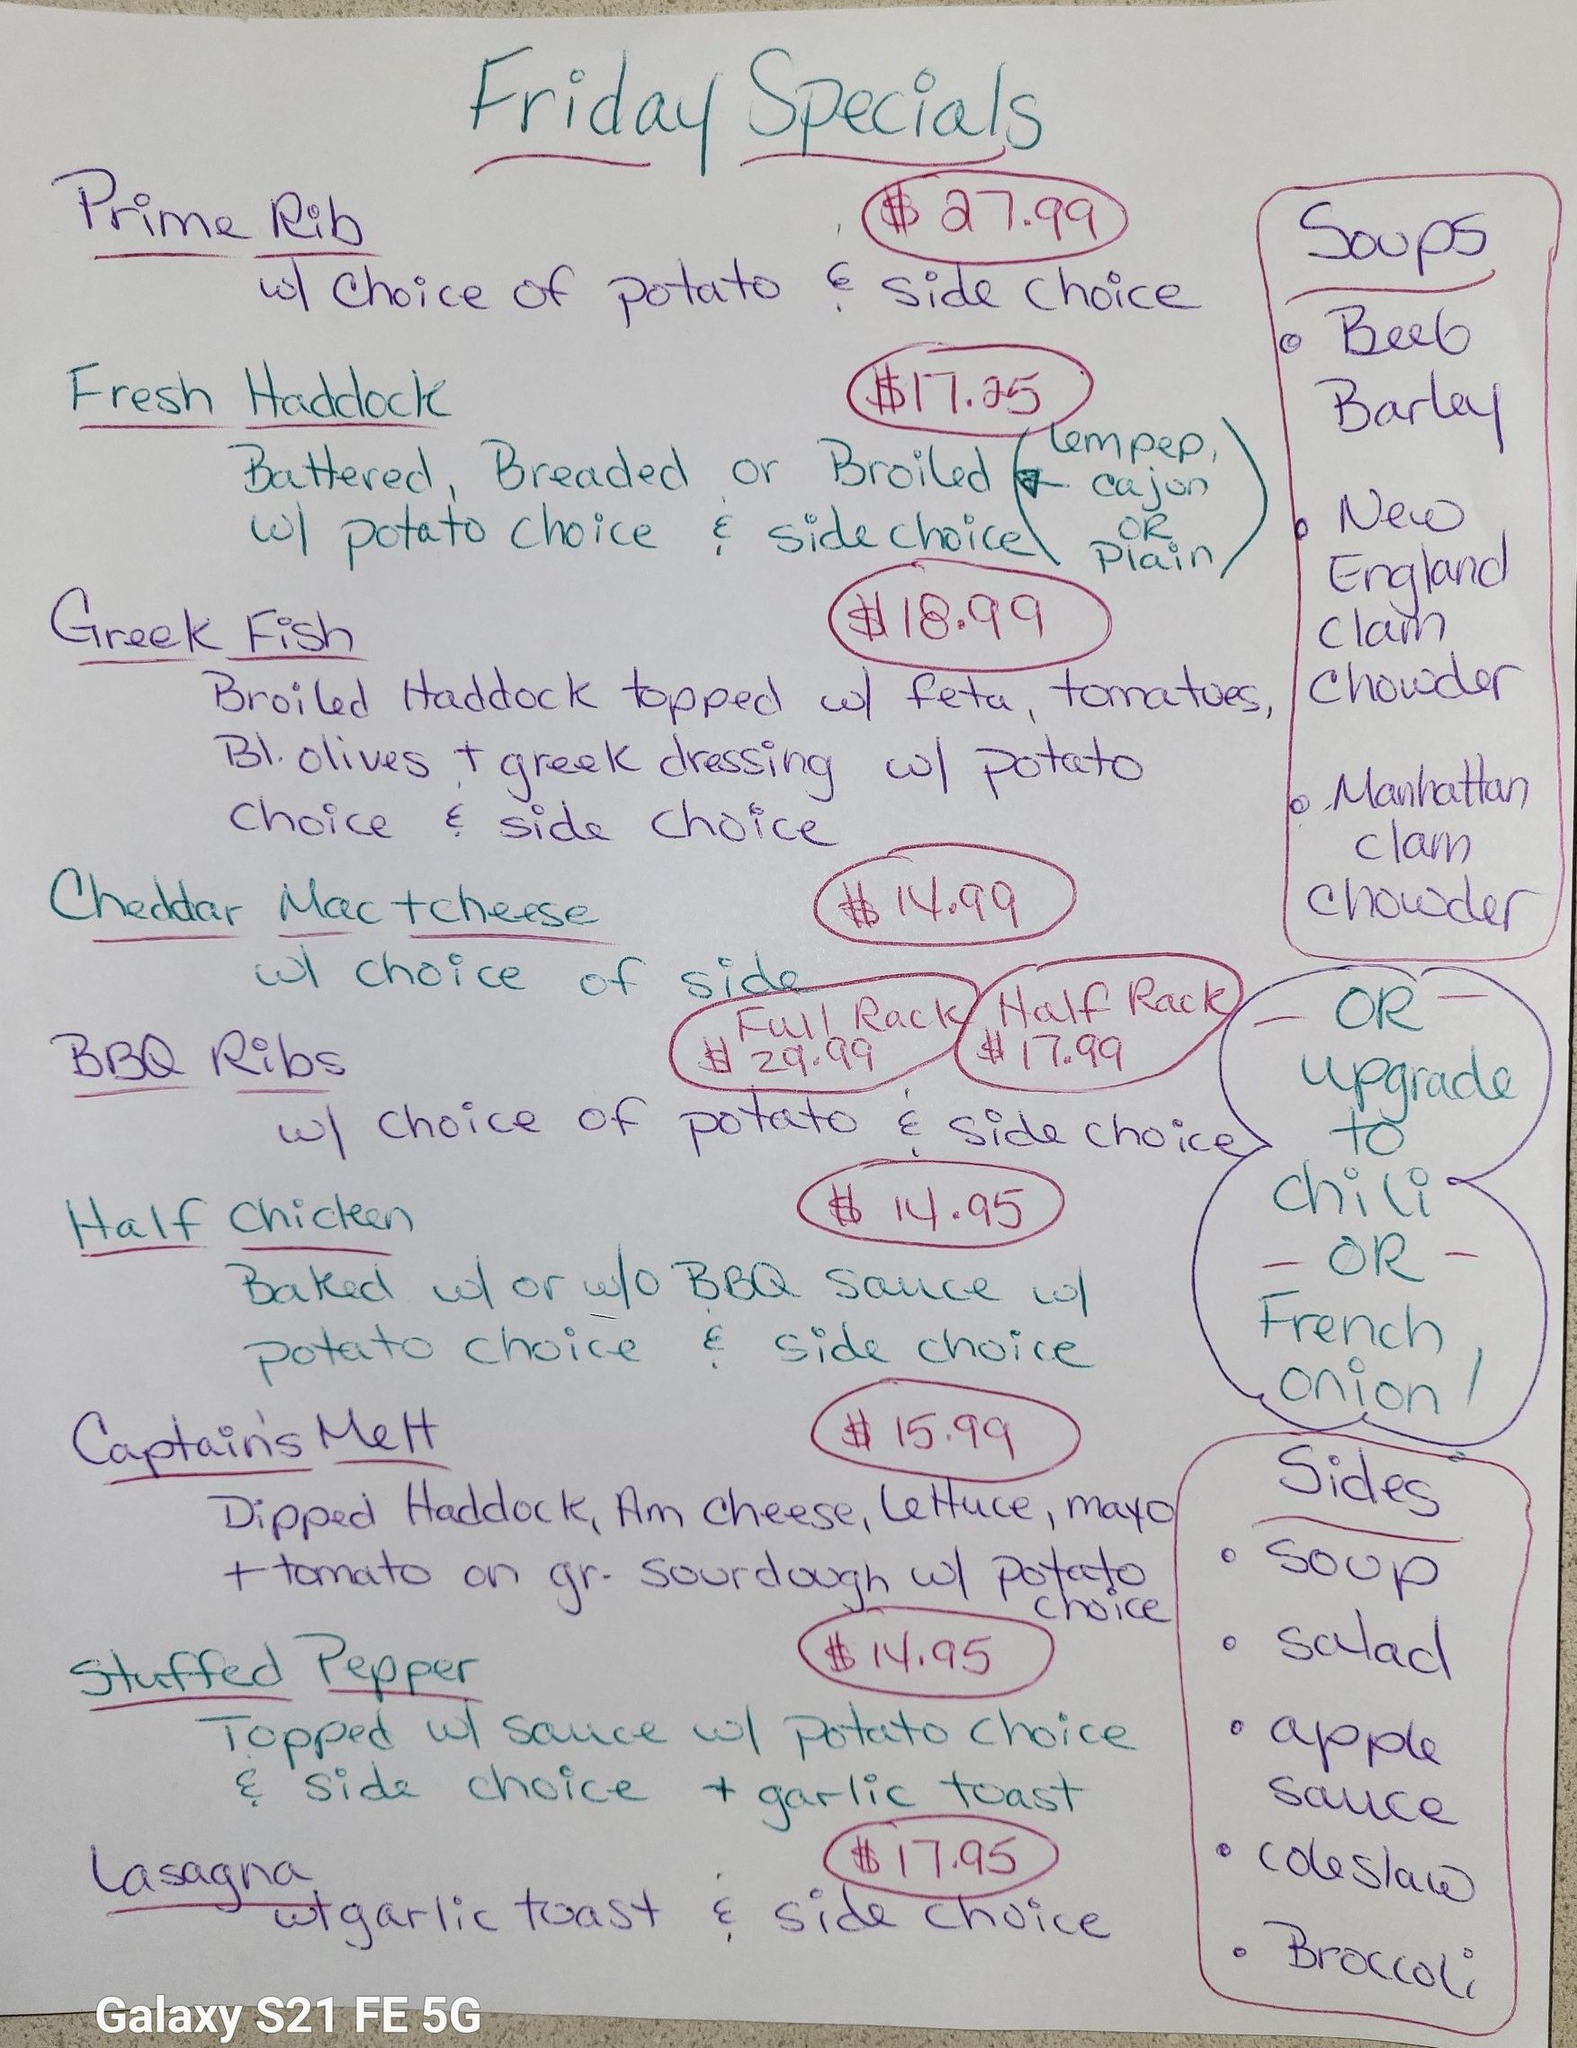 Friday Specials
Prime Rib $27.99
w/ choice of potato & side choice
Fresh Haddock $17.25
Battered, Breaded or Broiled (lempep,
cajon
OR
Plain)
w/ potato choice & side choice
Greek Fish $18.99
Broiled Haddock topped w/ feta, tomatoes,
Bl. olives + greek dressing w/ potato
choice & side choice
Cheddar Mac + cheese $14.99
w/ choice of side
BBQ Ribs
Full Rack
$29.99
Half Rack
$17.99
w/ choice of potato & side choice
Half Chicken $14.95
Baked w/ or w/o BBQ sauce w/
potato choice & side choice
Captain's Melt $15.99
Dipped Haddock, Am cheese, lettuce, mayo
+ tomato on gr. sourdough w/ potato
choice
Stuffed Pepper $14.95
Topped w/ sauce w/ potato choice
& side choice + garlic toast
Lasagna $17.95
w/ garlic toast & side choice
Soups
• Beef
Barley
• New
England
clam
chowder
• Manhattan
clam
chowder
- OR -
upgrade
to
chili
- OR -
French
onion!
Sides
• soup
• salad
• apple
sauce
• coleslaw
• Broccoli
Galaxy S21 FE 5G